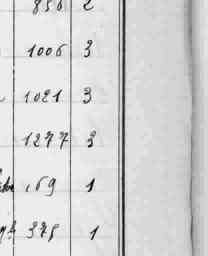 856 2
1006 3
1021 3
1277 3
169 1
375 1